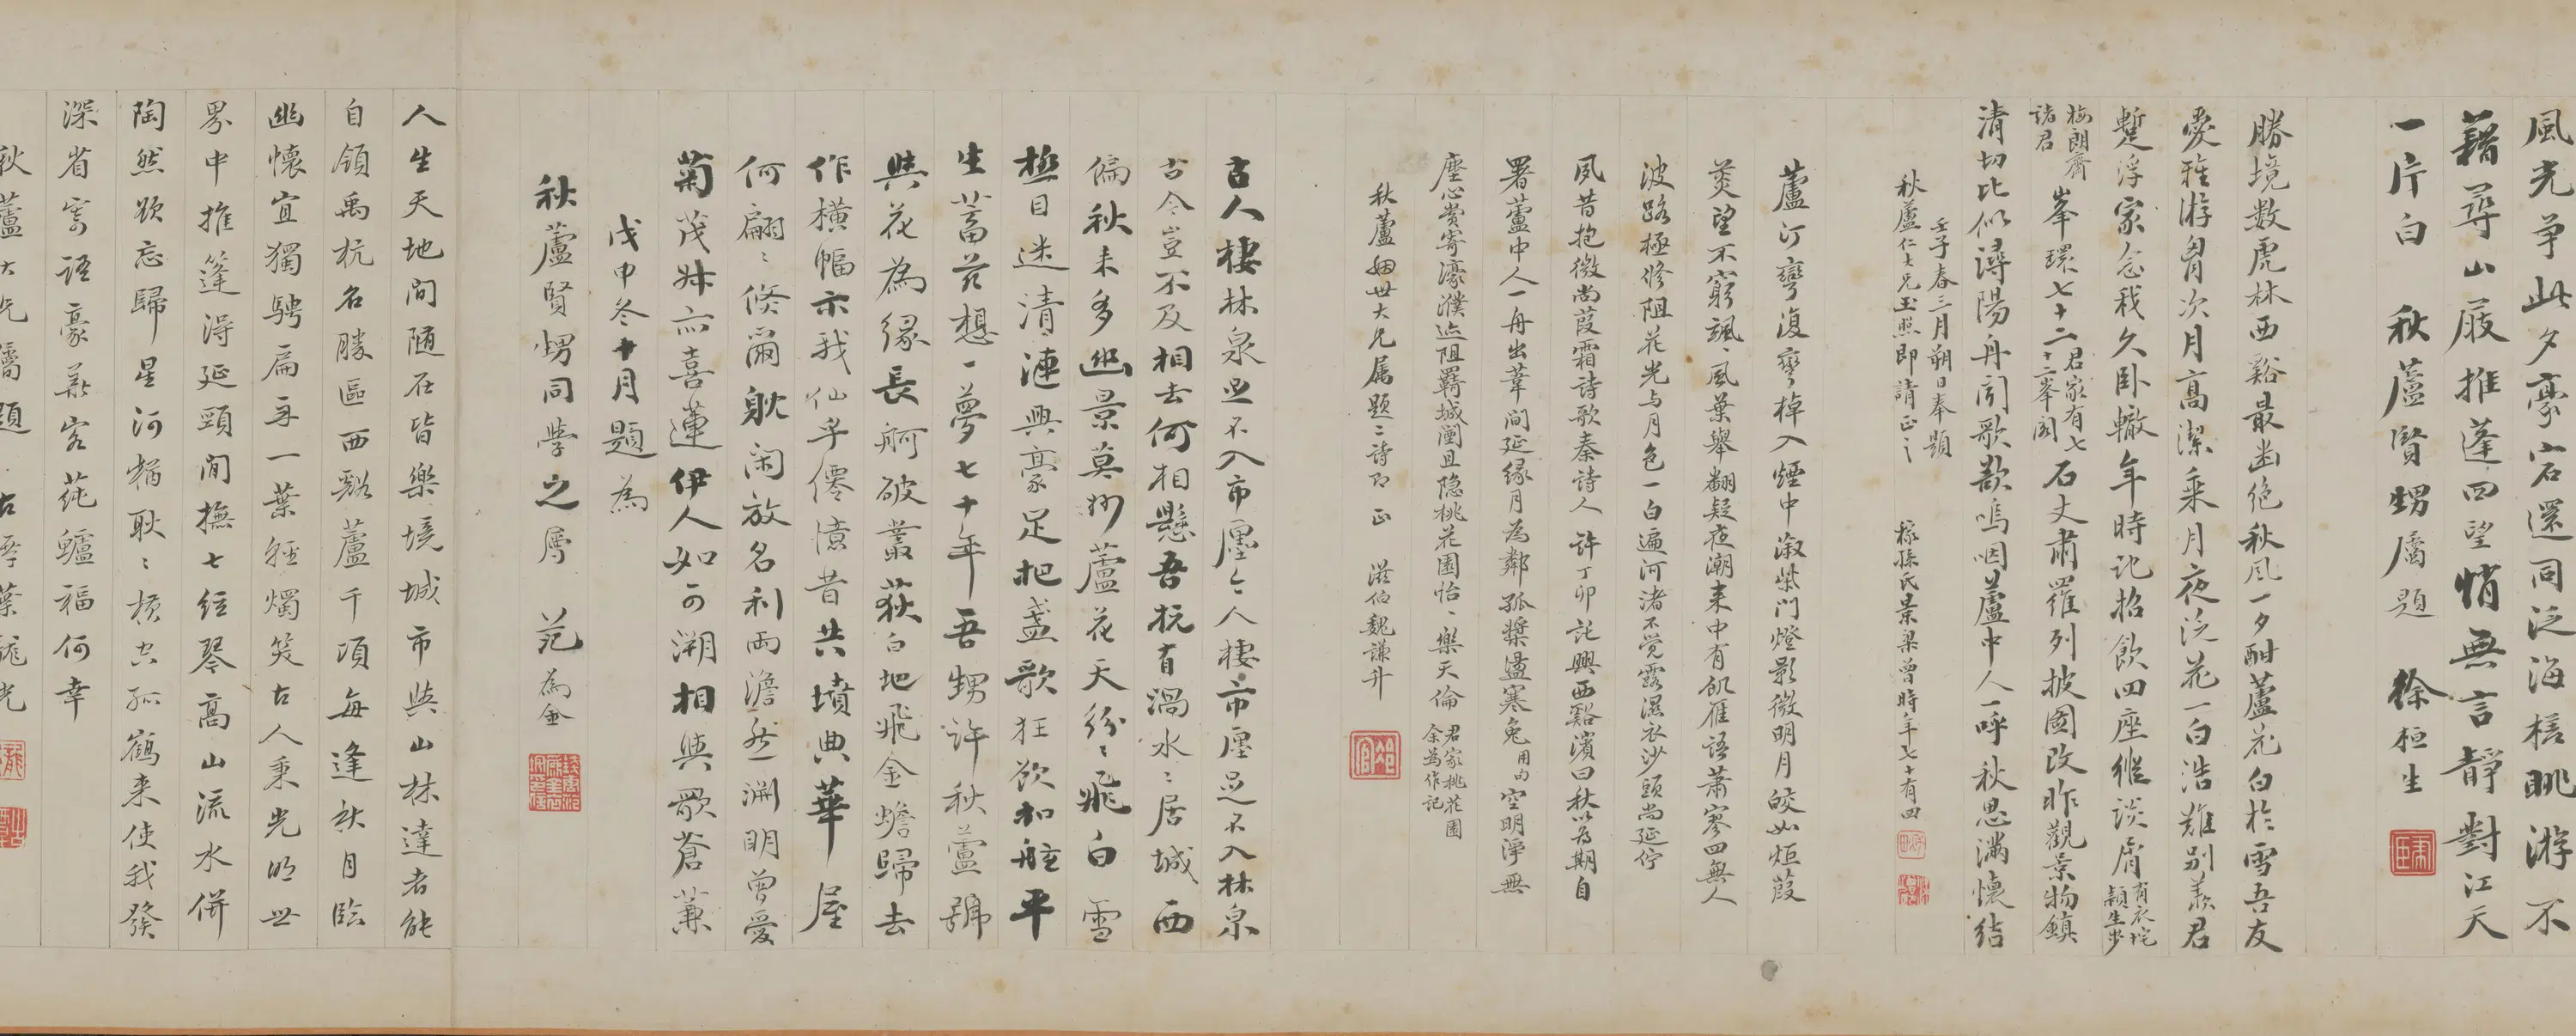 風光爭此夕豪宕還同泛海槎眺游不
藉尋山屐推蓬四望悄無言靜對江天
一片白 秋蘆賢甥屬題 徐桓生
勝境數虎林西谿最幽絶秋風一夕酣蘆花白於雪吾友
愛雅游胷次月高潔乘月夜泛花一白浩難別羨君
蹔浮家念我久卧轍年時記招飲四座縱談屑
梅朗齋
諸君
峯環七十二
君家有七
十二峯閣
石丈肅羅列披圖改昨觀景物鎮
清切比似潯陽舟聞歌歎嗚咽蘆中人一呼秋思滿懷結
壬子春三月朔日奉題
秋蘆仁大兄玉照即請正之 稼孫氏景梁曾時年七十有四
蘆汀彎復彎棹入煙中溆柴門燈影微明月皎如炬葭
菼望不窮颯颯風葉舉翻疑夜潮來中有飢雁語蕭寥四無人
波路極修阻花光与月色一白遍河渚不覺露濕衣沙頭尚延佇
夙昔抱微尚葭霜詩歌秦詩人許丁卯託興西谿濱曰秋以為期自
署蘆中人一舟出葦間延緣月為鄰孤槳盪寒兔
用句
空明淨無
塵心賞寄濠濮迹阻羈城闉且隐桃花園怡怡樂天倫
君家桃花園
余為作記
秋蘆姻世大兄屬題二詩即正 滋伯魏謙升
古人棲林泉足不入市廛今人棲市廛足不入林泉
古今豈不及相去何相懸吾杭有渦水水居城西
偏秋来多幽景莫妙蘆花天紛紛飛白雪
極目迷清漣興豪足把盞歌狂欲扣舷平
生蓄茲想一夢七十年吾甥許秋蘆號
與花為緣長舸破叢荻白地飛金蟾歸去
作横幅示我仙乎僊憶昔共墳典華屋
何翩翩倏爾躭閑放名利兩澹然淵明曾愛
菊茂叔亦喜蓮伊人如可溯相與歌蒼蒹
戊申冬十月題為
秋蘆賢甥同學之屬 范為金
人生天地間随在皆樂境城市與山林達者能
自領禹杭名勝區西谿蘆千頃每逢秋月臨
幽懷宜獨騁扁舟一葉輕燭笑古人秉光明世
界中推篷得延頸閒撫七絃琴高山流水併
陶然欲忘歸星河猶耿耿横空孤鶴来使我發
深省寄語豪華客蒓鱸福何幸
秋蘆大兄屬題